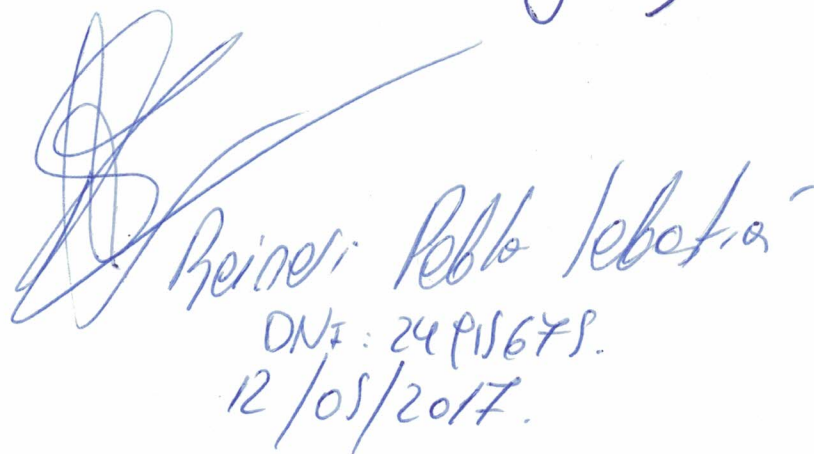 Reineri Pablo Sebastiá
DNI: 24915675.
12/05/2017.